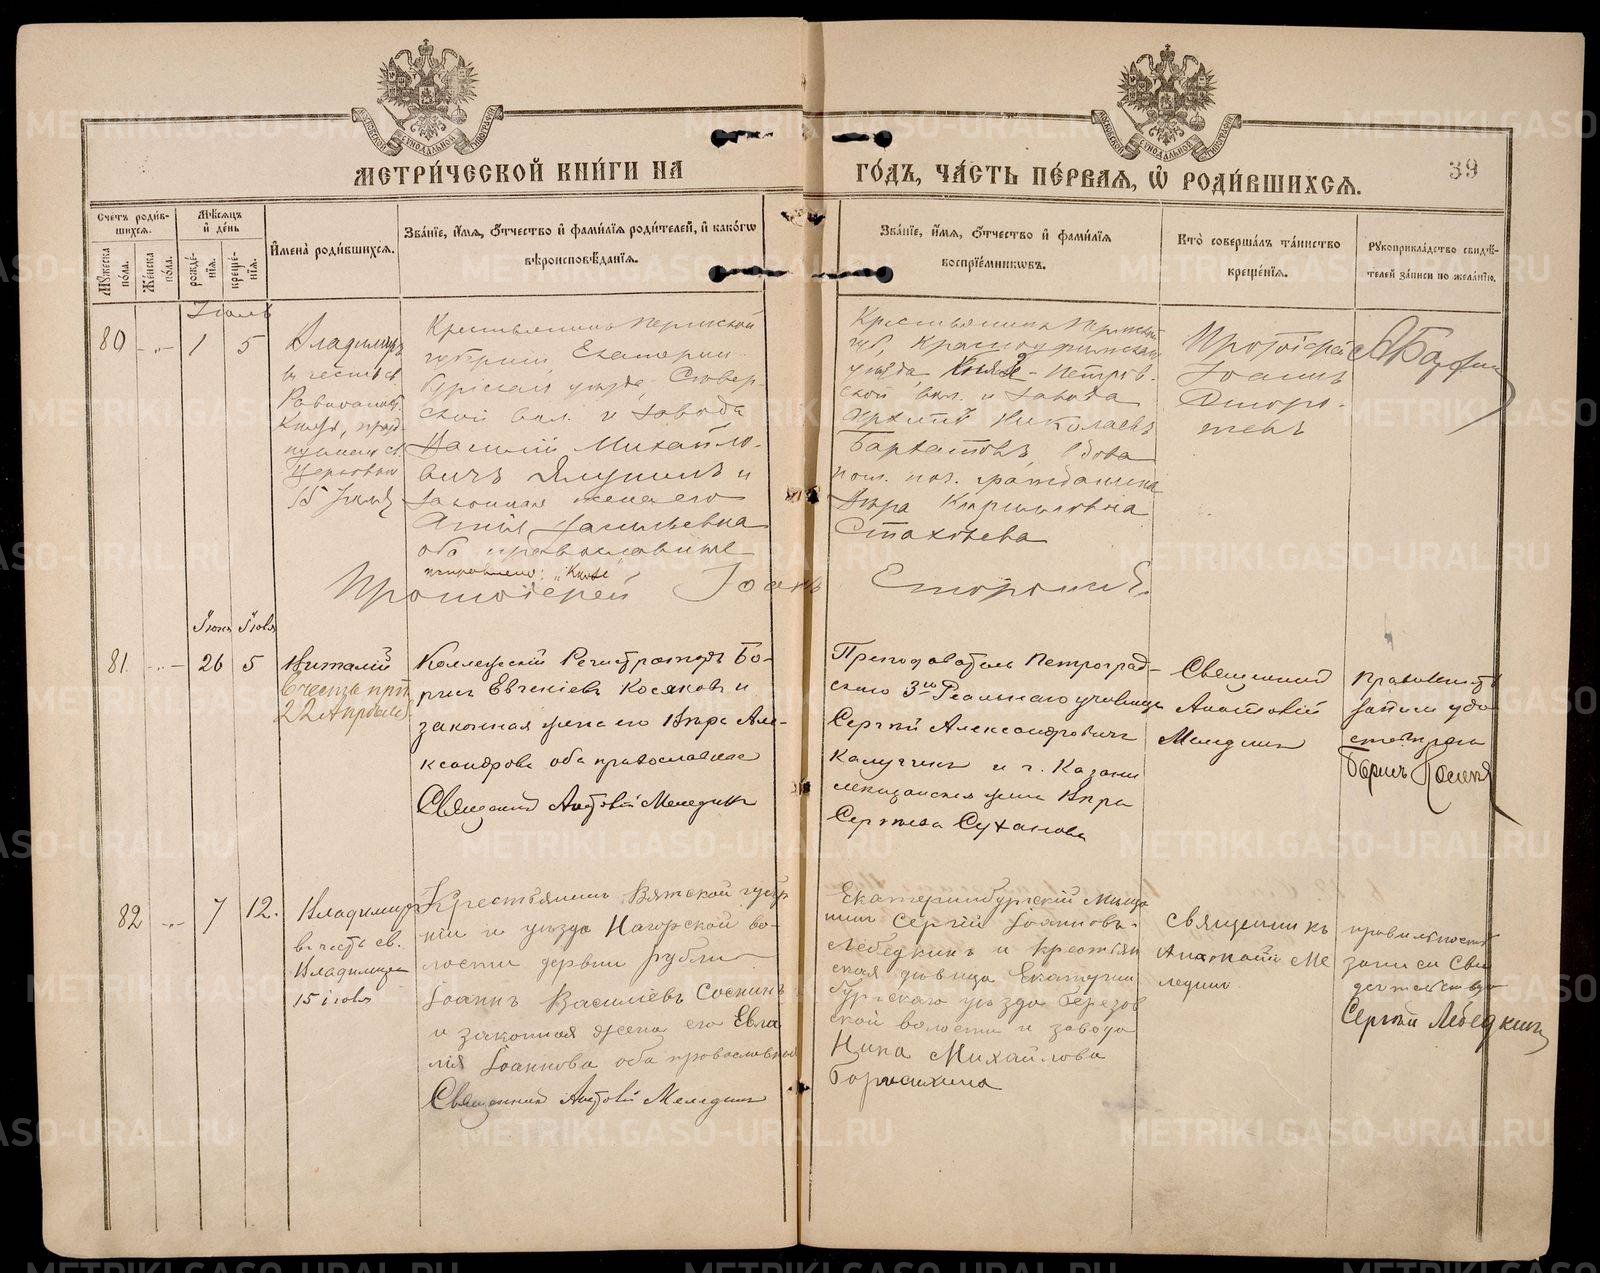 МЕТРИ́ЧЕСКОЙ КНИ́ГИ НА
ГО́ДЪ, ЧА́СТЬ ПЕ́РВАѦ, Ѿ РОДИ́ВШИХСѦ.
39
Счетъ роди́в-
шихсѧ.
Мѣ́сѧцъ
и҆ де́нь
И҆мена̀ роди́вшихсѧ.
Зва́нїе, и҆́мѧ, ѻ҆́тчество и҆ фами́лїѧ роди́телей, и҆ како́гѡ
вѣроисповѣ́данїѧ.
Зва́нїе, и҆́мѧ, ѻ҆́тчество и҆ фами́лїѧ
воспрїе́мникѡвъ.
Кто̀ соверша́лъ та́инство
креще́нїѧ.
Рꙋкоприкла́дство свидѣ́-
телей за́писи по жела́нїю.
Мꙋжеска
по́ла.
Же́нска
по́ла.
рожде́-
нїѧ.
креще́-
нїѧ.
Іюль
80
1
5
Владиміръ
въ честь св.
Равноапост.
Князя, празд-
нуемаго св.
Церковью
15 Іюля
Крестьянинъ Пермской
губерніи, Екатерин-
бургскаго уѣзда, Сысерт-
ской вол. и завода
Василій Михайло-
вичъ Ялунинъ и
законная жена его
Васильевна
оба православные
исправлено: "Князе"
Протоіерей Іоаннъ Сторожевъ
Крестьянинъ Пермской
губ, Красноуфимскаго
уѣзда, Князе-Петров-
ской вол. и завода
Архипъ Николаевъ
Бархатовъ, вдова
пот. поч. гражданина
Вѣра Кирилловна
Стахѣева
Протоіерей
Іоаннъ
Сторо-
жевъ
Іюнь Іюля
81
26
5
Виталій
въ честь прп.
22 Апрѣля
Коллежскій Регистраторъ Бо-
рисъ Евгеніевъ Косяковъ и
законная жена его Вѣра Але-
ксандрова оба православные
Священникъ Анатолій Меледин
Преподаватель Петроград-
скаго 3го Реальнаго училища
Сергѣй Александровичъ
Калугинъ и г. Казани
мѣщанская жена Вѣра
Сергѣева Суханова
Священникъ
Анатолій
Мелединъ
Правильность
записи удо-
стовѣряю
Борисъ Косяковъ
82
7
12.
Владиміръ
въ честь св.
Владиміра
15 іюля
Крестьянинъ Вятской губер-
ніи и уѣзда Нагорской во-
лости дервни Рубли
Іоаннъ Василіевъ Соснинъ
и законная жена его Евла-
лія Іоаннова оба православные
Священникъ Анатолій Мелединъ
Екатеринбургскій мѣща-
нинъ Сергѣй Іоанновъ
Лебедкинъ и крестьян-
ская дѣвица Екатерин-
бургскаго уѣзда Березов-
ской волости и завода
Нина Михайлова
Борисихина
Священникъ
Анатолій Ме
лединъ
правильность
записи сви
дѣтельствую
Сергѣй Лебедкинъ